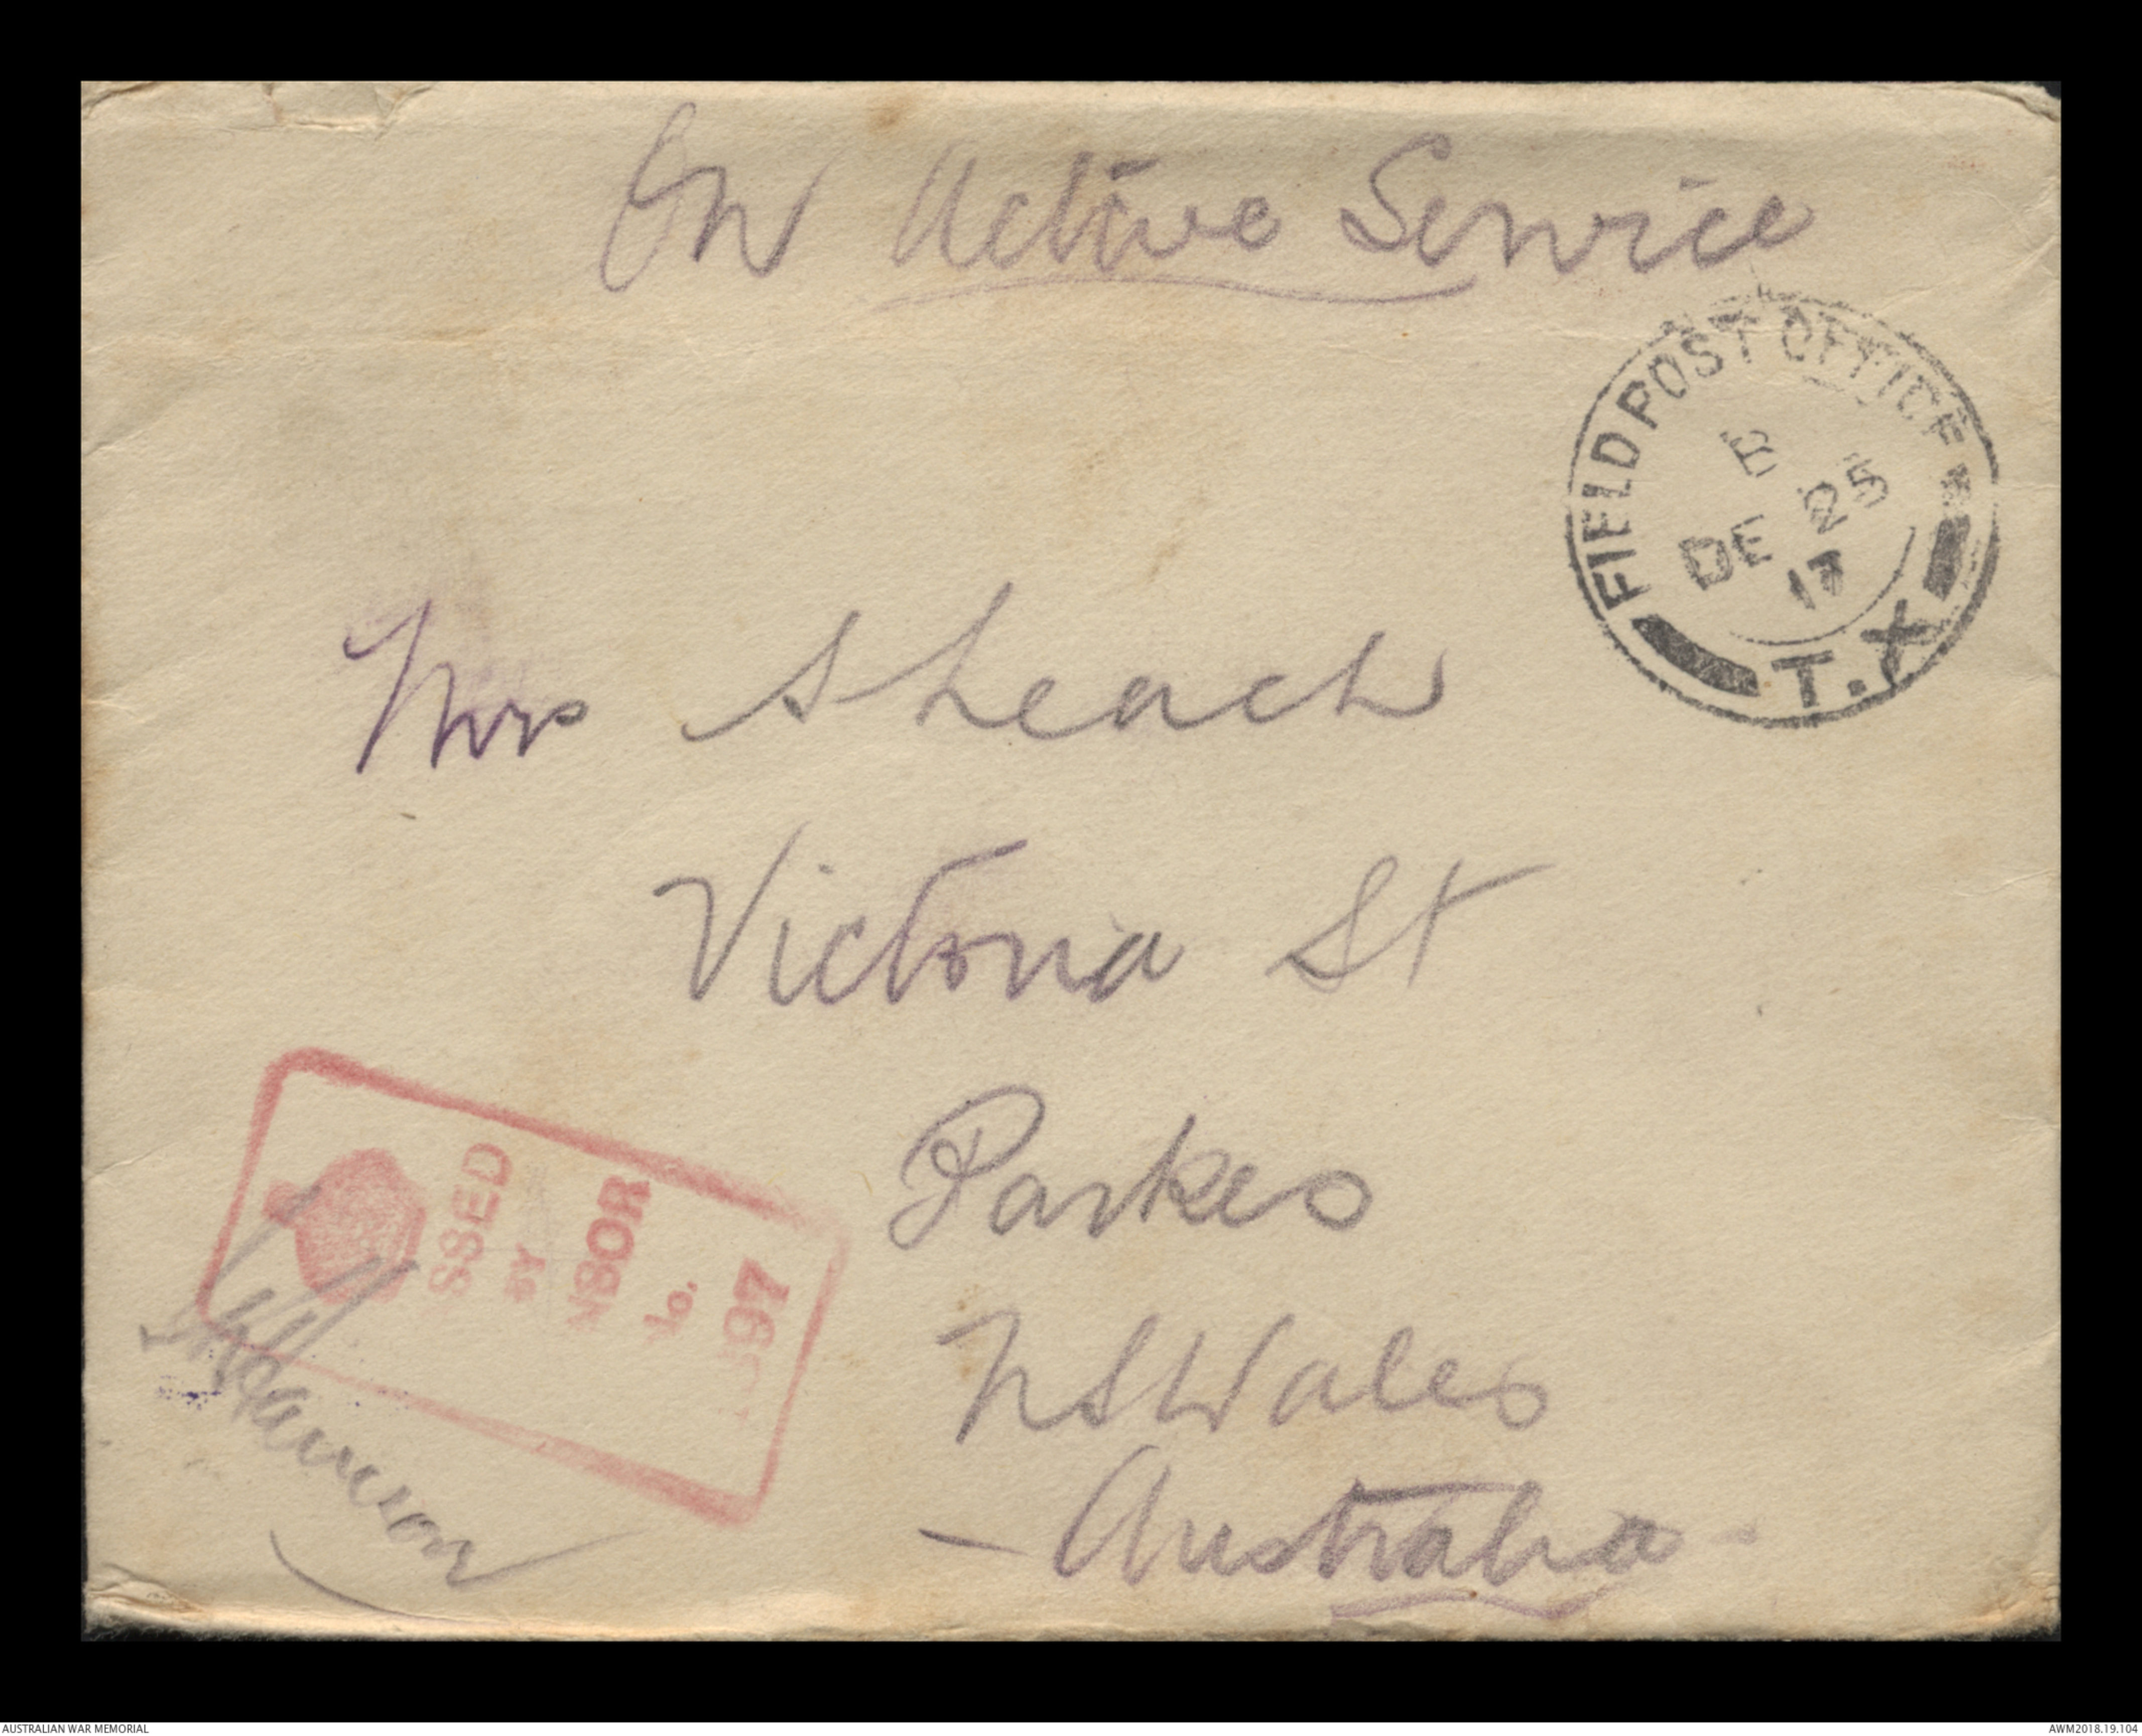 On Active Service
FIELD POST OFFICE
B
DE 25
17
T.X
Mrs S Leach
Victoria St
Parkes
N S Wales
- Australia -
SSED
BY
NSOR
No.
97
AUSTRALIAN WAR MEMORIAL
AWM2018.19.104